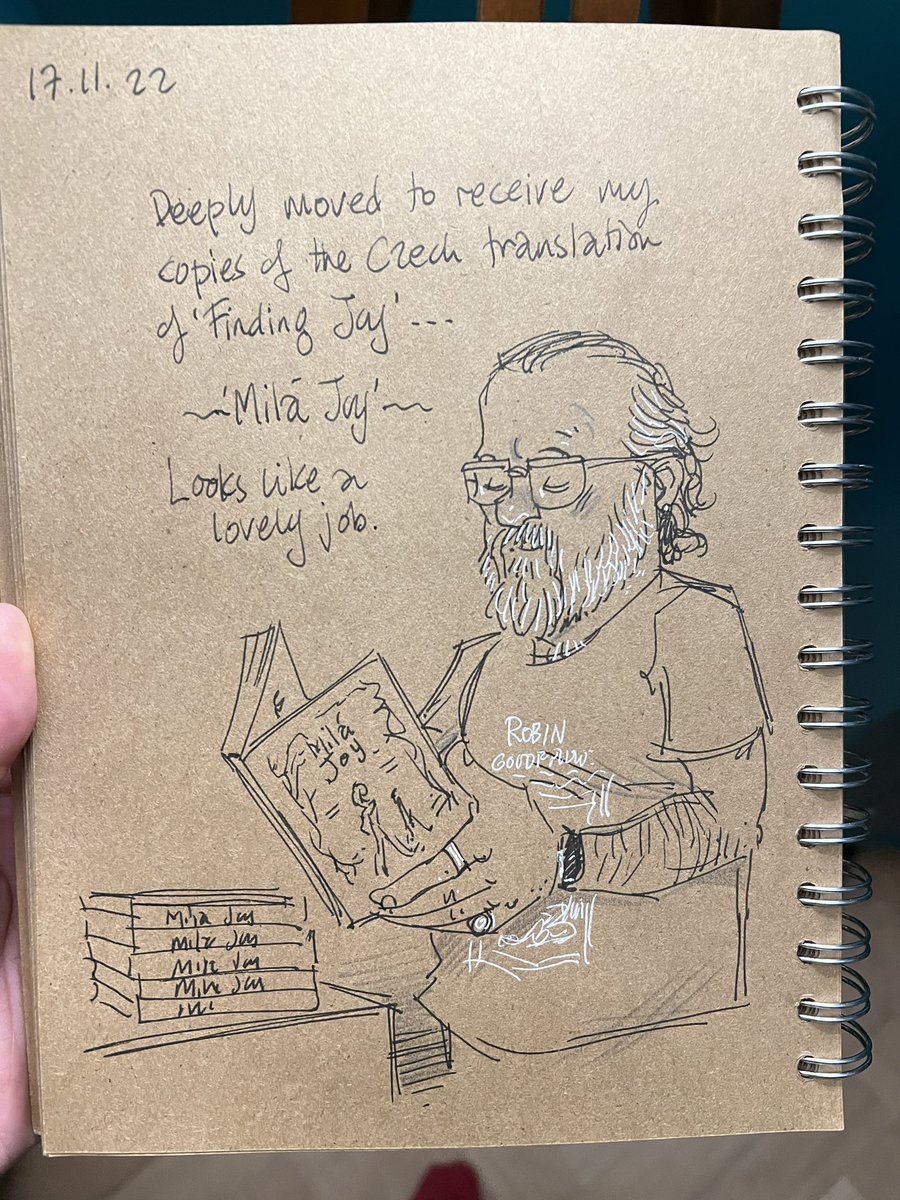 17.11.22
Deeply moved to receive my
copies of the Czech translation
of 'Finding Joy' ---
~'Milá Joy'~
Looks like a
lovely job.
ROBIN
Milá
Joy
Milá Joy
Milá Joy
Milá Joy
Milá Joy